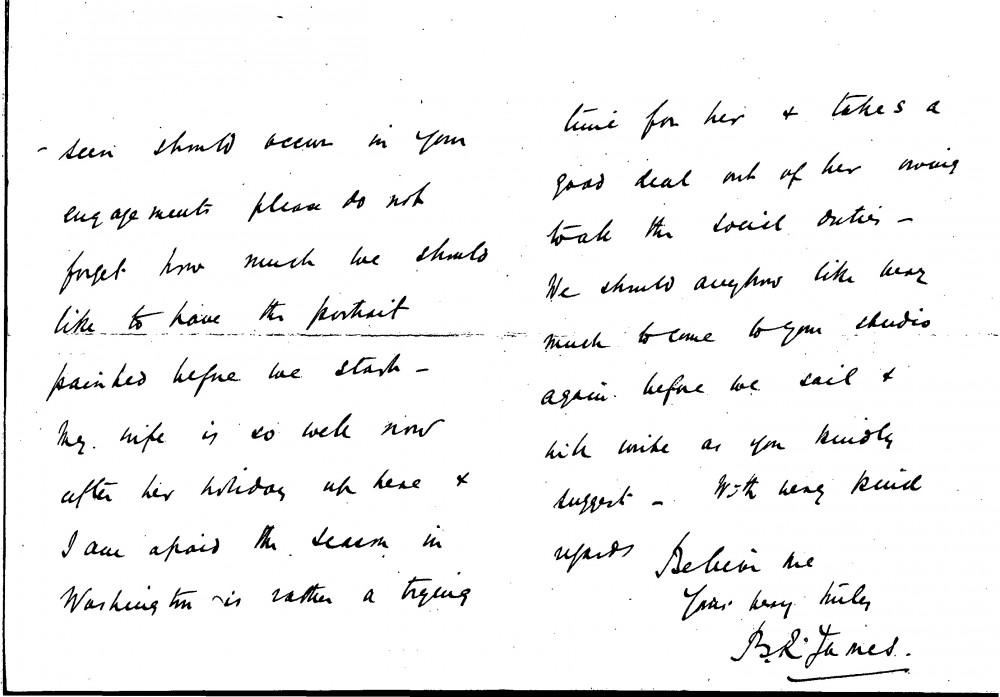 - seen should occur in your
engagements please do not
forget how much we should
like to have the portrait
painted before we start -
My wife is so well now
after her holiday up here &
I am afraid the season in
Washington is rather a trying
time for her & takes a
good deal out of her owing
to all the social duties -
We should anyhow like very
much to come to your studio
again before we sail &
will write as you kindly
suggest - With very kind
regards
Believe me
Yours very truly
B. R. James.